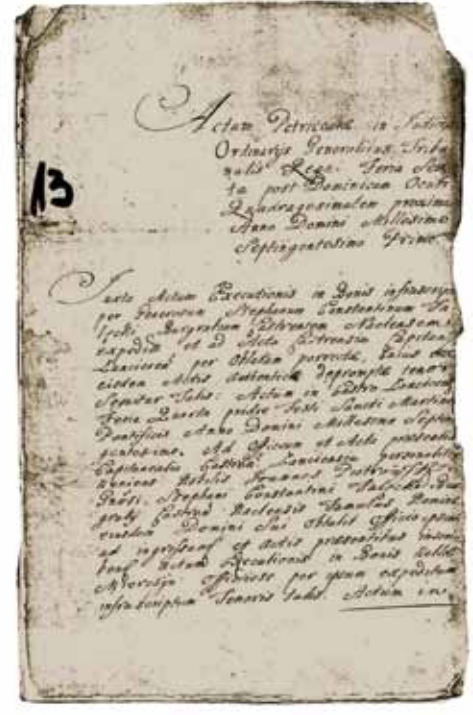 13
Actum Petricoviæ in Judicijs
Ordinarijs Generalibus Tribu
nalis Regni Feria Sex
ta post Dominicam Oculi
Quadragesimalem proxima
Anno Domini Millesimo
Septingentesimo Primo
Juxta Actum Executionis in Bonis infrascriptis
per Generosum Stephanum Constantinum
Burgrabium Castrensem Naclensem
expeditæ et ad Acta Castrensia Capitan
per Oblatam porrectæ, cuius
Actis Authentice depromptæ tenor
Sequitur talis: Actum in Castro
Feria Quarta pridie Festi Sancti Martini
Pontificis Anno Domini Millesimo Septin
gentesimo. Ad Officium et Acta præsentia
Capitanealia Castren. personaliter
veniens Nobilis Joannes
Gnosi. Stephani Constantini
Castren. Naclensis Famulus Nomine
eiusdem Domini Sui Obtulit Officio
ad ingrossand. et Actis præsentibus
Actum Executionis in Bonis
Officiose per ipsum expeditum
infrascriptum Tenoris talis. Actum in